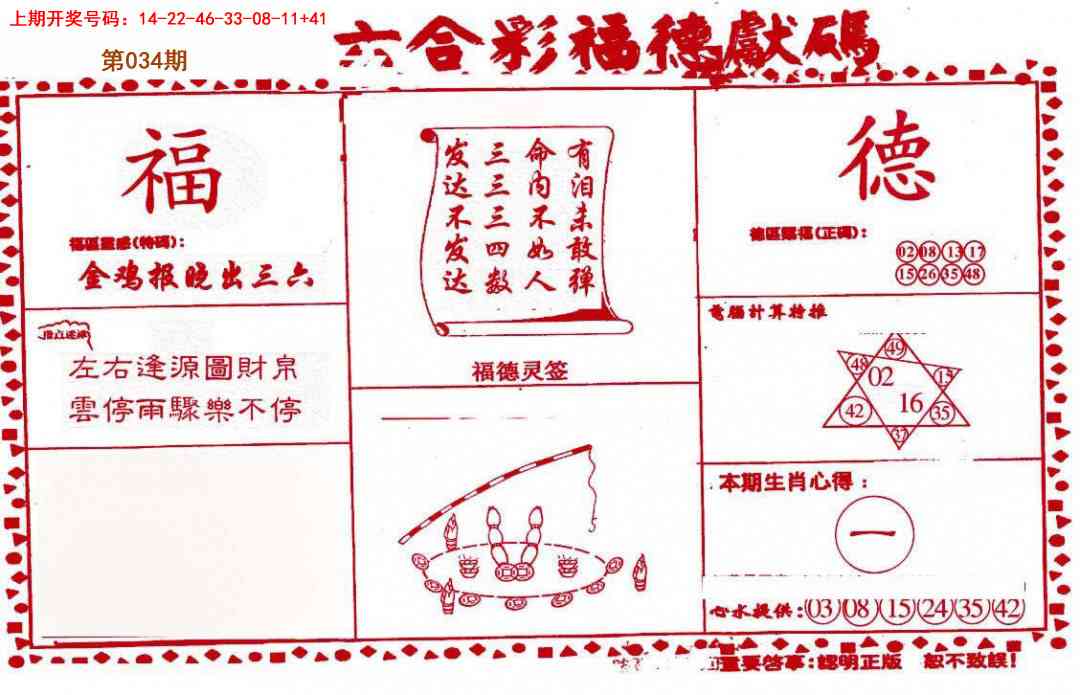 上期开奖号码：14-22-46-33-08-11+41
六合彩福德獻碼
第034期
福
福區靈感(特碼)：
金鸡报晓出三六
左右逢源圖財帛
雲停雨驟樂不停
有泪未敢弹
命内不如人
三三三四数
发达不发达
福德灵签
德
德區賜福(正碼)：
02 08 13 17
15 26 35 48
電腦計算特推
49
48 02 15
42 16 35
37
本期生肖心得：
一
心水提供：03 08 15 24 35 42
重要啓事：認明正版 恕不致誤！